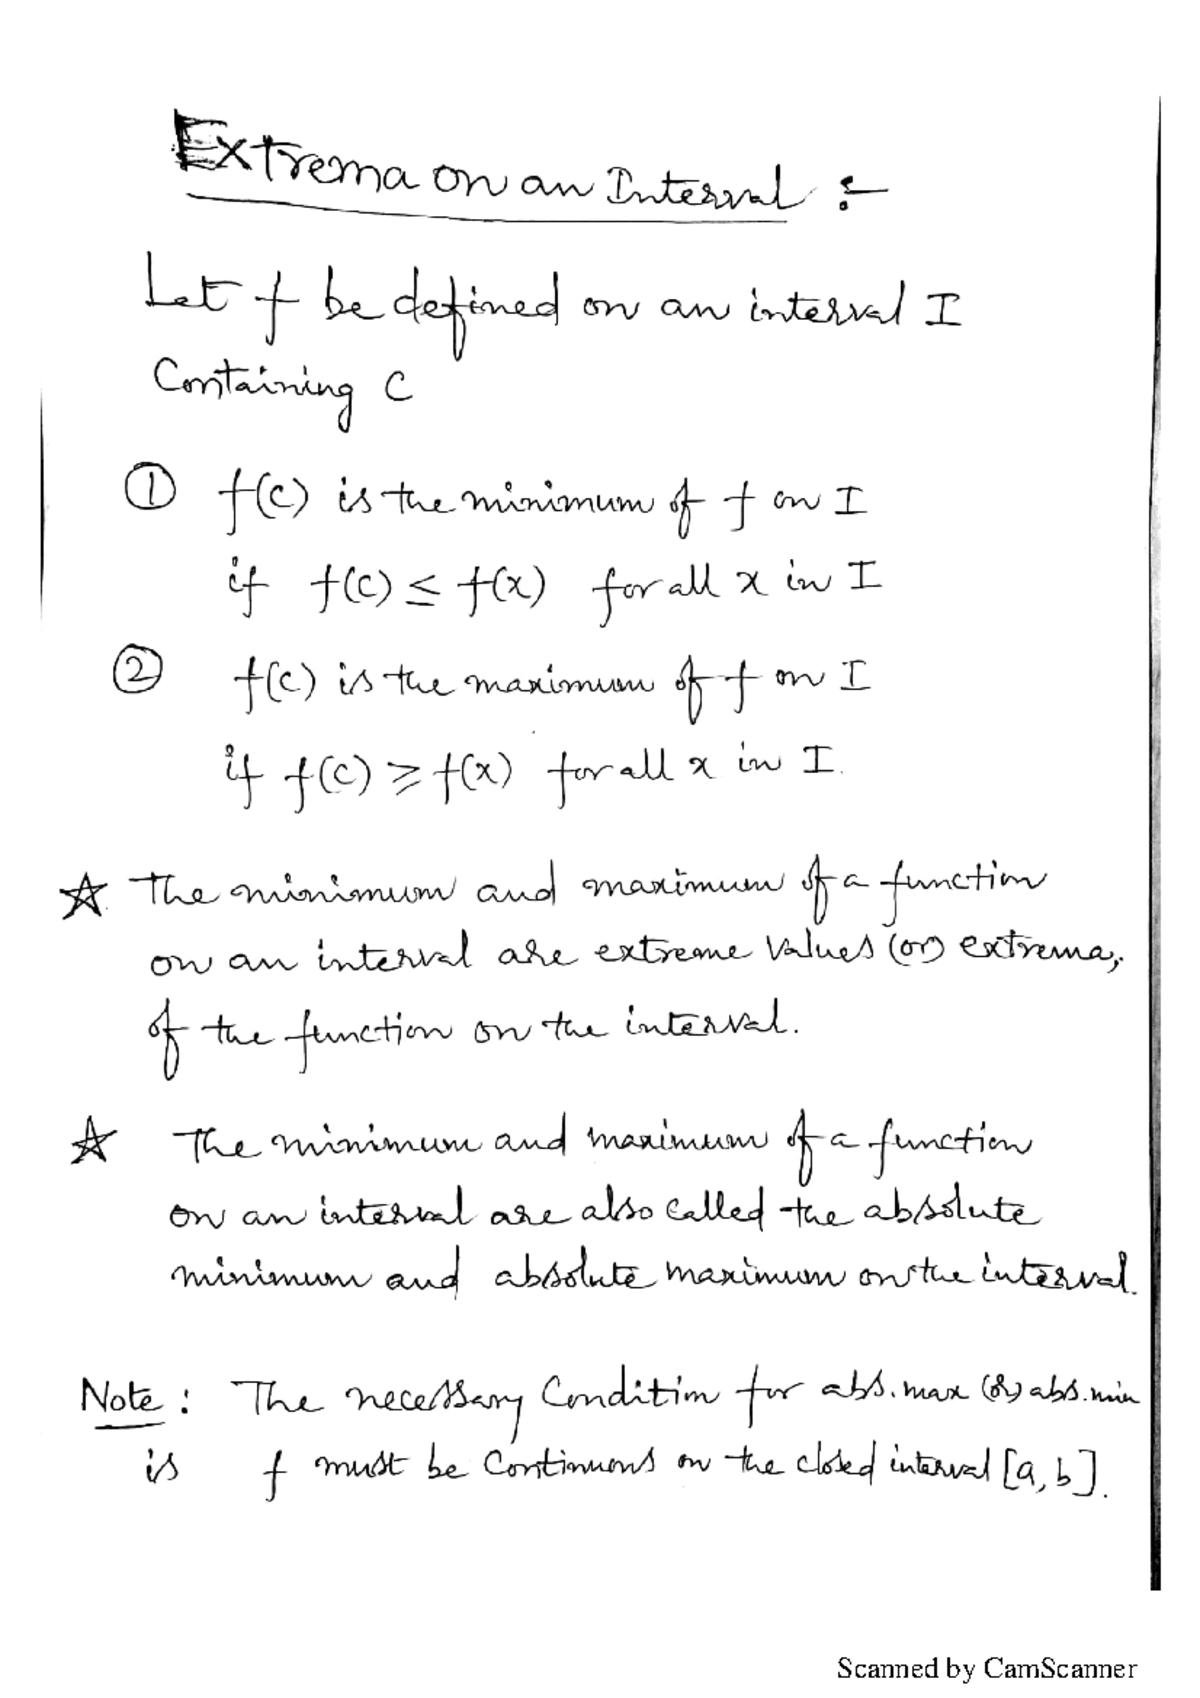 Extrema on an Interval :-
Let f be defined on an interval I
Containing C
① f(c) is the minimum of f on I
if f(c) ≤ f(x) for all x in I
② f(c) is the maximum of f on I
if f(c) ≥ f(x) for all x in I.
☆ The minimum and maximum of a function
on an interval are extreme values (or) extrema,
of the function on the interval.
☆ The minimum and maximum of a function
on an interval are also called the absolute
minimum and absolute maximum on the interval.
Note : The necessary Condition for abs. max (or) abs. min
is f must be Continuous on the closed interval [a, b].
Scanned by CamScanner